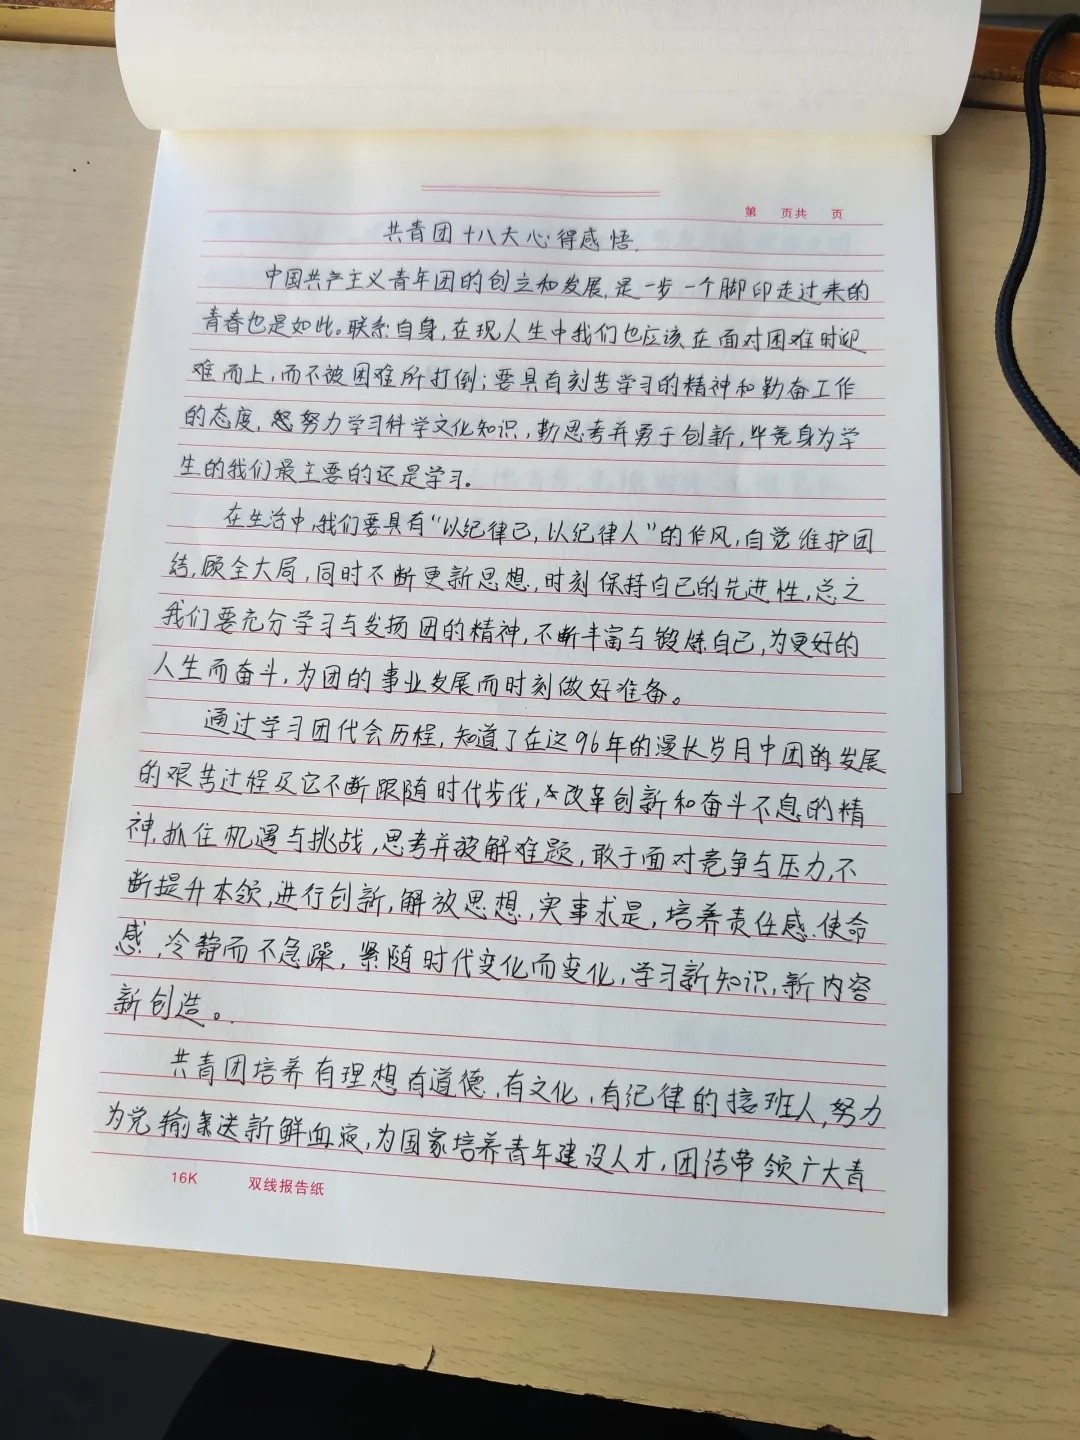 第 页共 页
共青团十八大心得感悟.
中国共产主义青年团的创立和发展,是一步一个脚印走过来的
青春也是如此。联系自身,在现人生中我们也应该在面对困难时迎
难而上,而不被困难所打倒;要具有刻苦学习的精神和勤奋工作
的态度,努力学习科学文化知识,勤思考并勇于创新,毕竟身为学
生的我们最主要的还是学习。
在生活中,我们要具有“以纪律己,以纪律人”的作风,自觉维护团
结,顾全大局,同时不断更新思想,时刻保持自己的先进性,总之
我们要充分学习与发扬团的精神,不断丰富与锻炼自己,为更好的
人生而奋斗,为团的事业发展而时刻做好准备。
通过学习团代会历程,知道了在这96年的漫长岁月中团的发展
的艰苦过程及它不断跟随时代步伐,改革创新和奋斗不息的精
神,抓住机遇与挑战,思考并破解难题,敢于面对竞争与压力,不
断提升本领,进行创新,解放思想,实事求是,培养责任感、使命
感,冷静而不急躁,紧随时代变化而变化,学习新知识,新内容
新创造。
共青团培养有理想有道德,有文化,有纪律的接班人,努力
为党输送新鲜血液,为国家培养青年建设人才,团结带领广大青
16K 双线报告纸